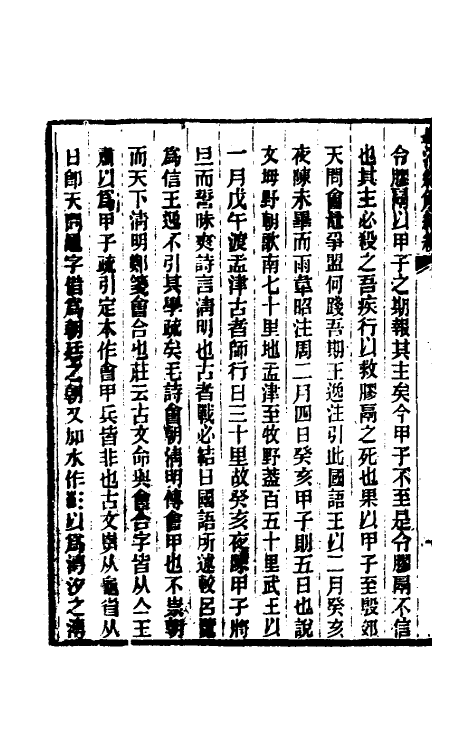 令膠鬲以甲子之期報其主矣今甲子不至是令膠鬲不信
也其主必殺之吾疾行以救膠鬲之死也果以甲子至殷郊
天問會鼂爭盟何踐吾期王逸注引此國語王以二月癸亥
夜陳未畢而雨韋昭注周二月四日癸亥甲子則五日也說
文坶野朝歌南七十里地孟津至牧野蓋百五十里武王以
一月戊午渡孟津古者師行日三十里故癸亥夜陳甲子將
旦而誓昧爽詩言淸明也古者戰必結日國語所述較呂覽
爲信王逸不引其學疏矣毛詩會朝淸明傳會甲也不崇朝
而天下淸明鄭箋會合也莊云古文命與會合字皆从亼王
肅以爲甲子疏引定本作會甲兵皆非也古文鼂从黽省从
日卽天問鼂字借爲朝廷之朝又加水作以爲潮汐之潮